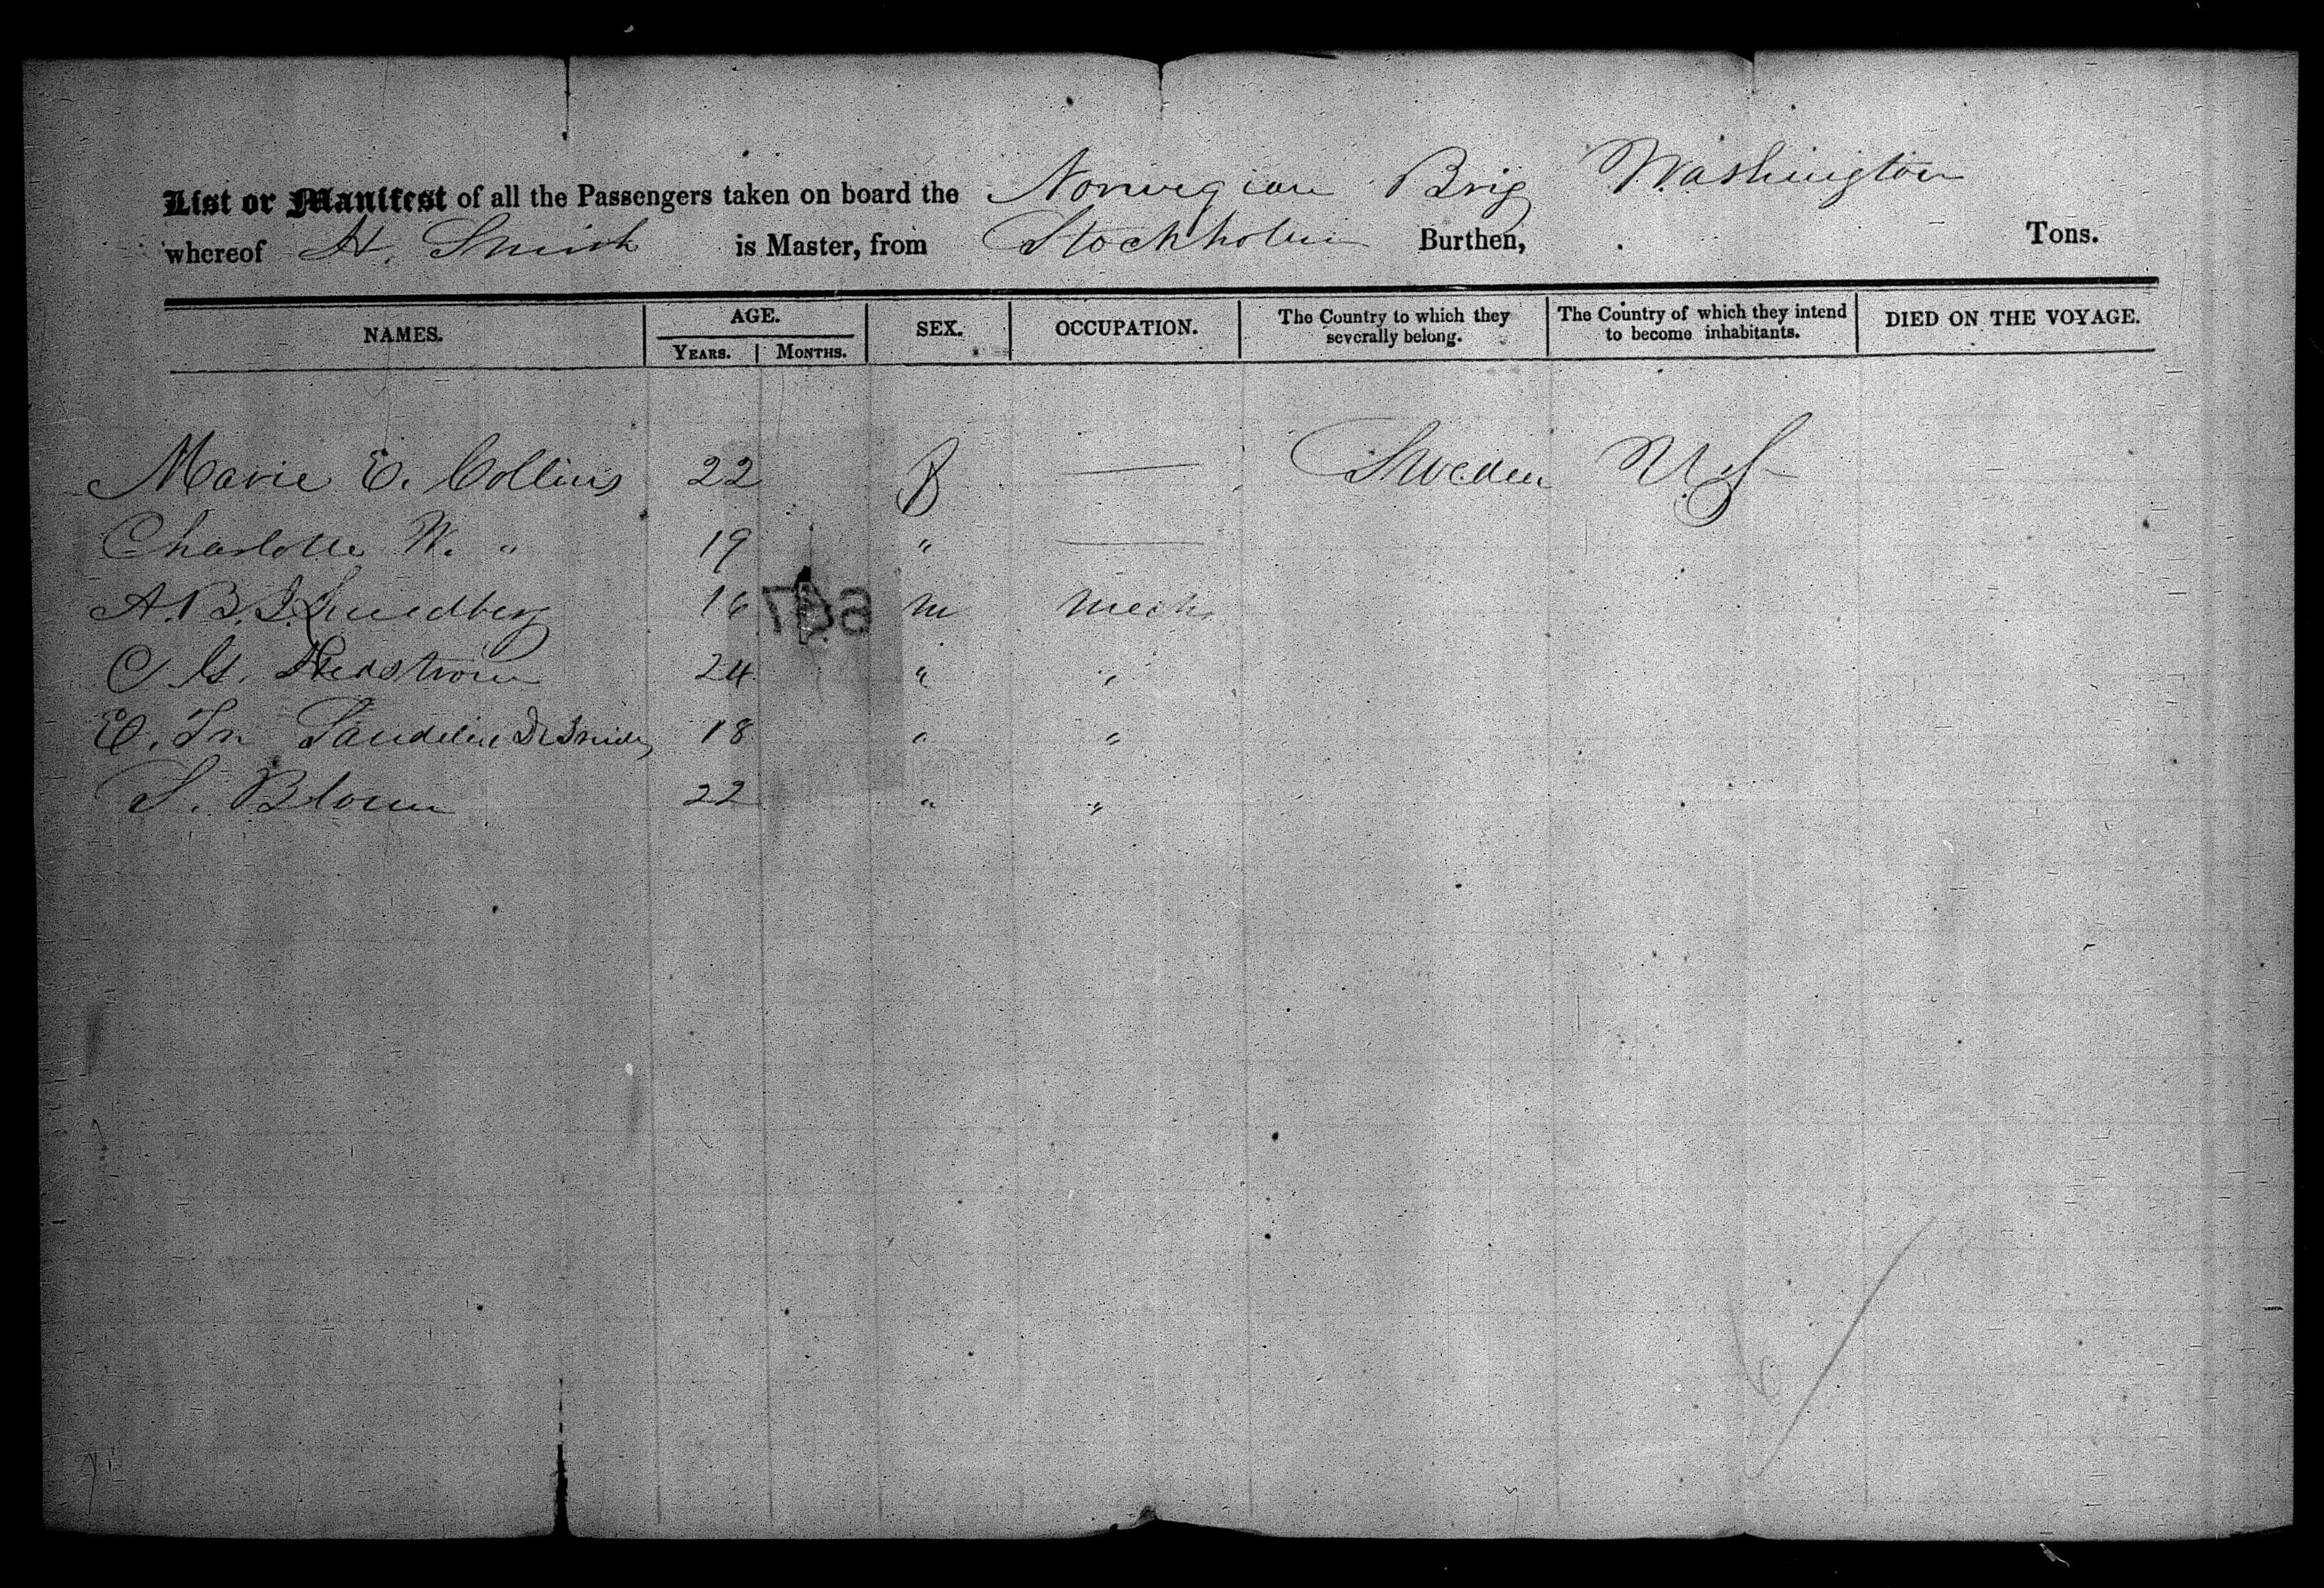 List or Manifest of all the Passengers taken on board the Norwegian Brig Washington
whereof H. is Master, from Stockholm Burthen, Tons.
NAMES. AGE. YEARS. MONTHS. SEX. OCCUPATION. The Country to which they severally belong. The Country of which they intend to become inhabitants. DIED ON THE VOYAGE.
Marie E. Collins 22 f — Sweden U.S
Charlotte W. " 19 " —
A. B. J. Lundberg 16 m Mech
C G. 24 " "
E. Sandelin 18 " "
S. Blom 22 " "
647
6